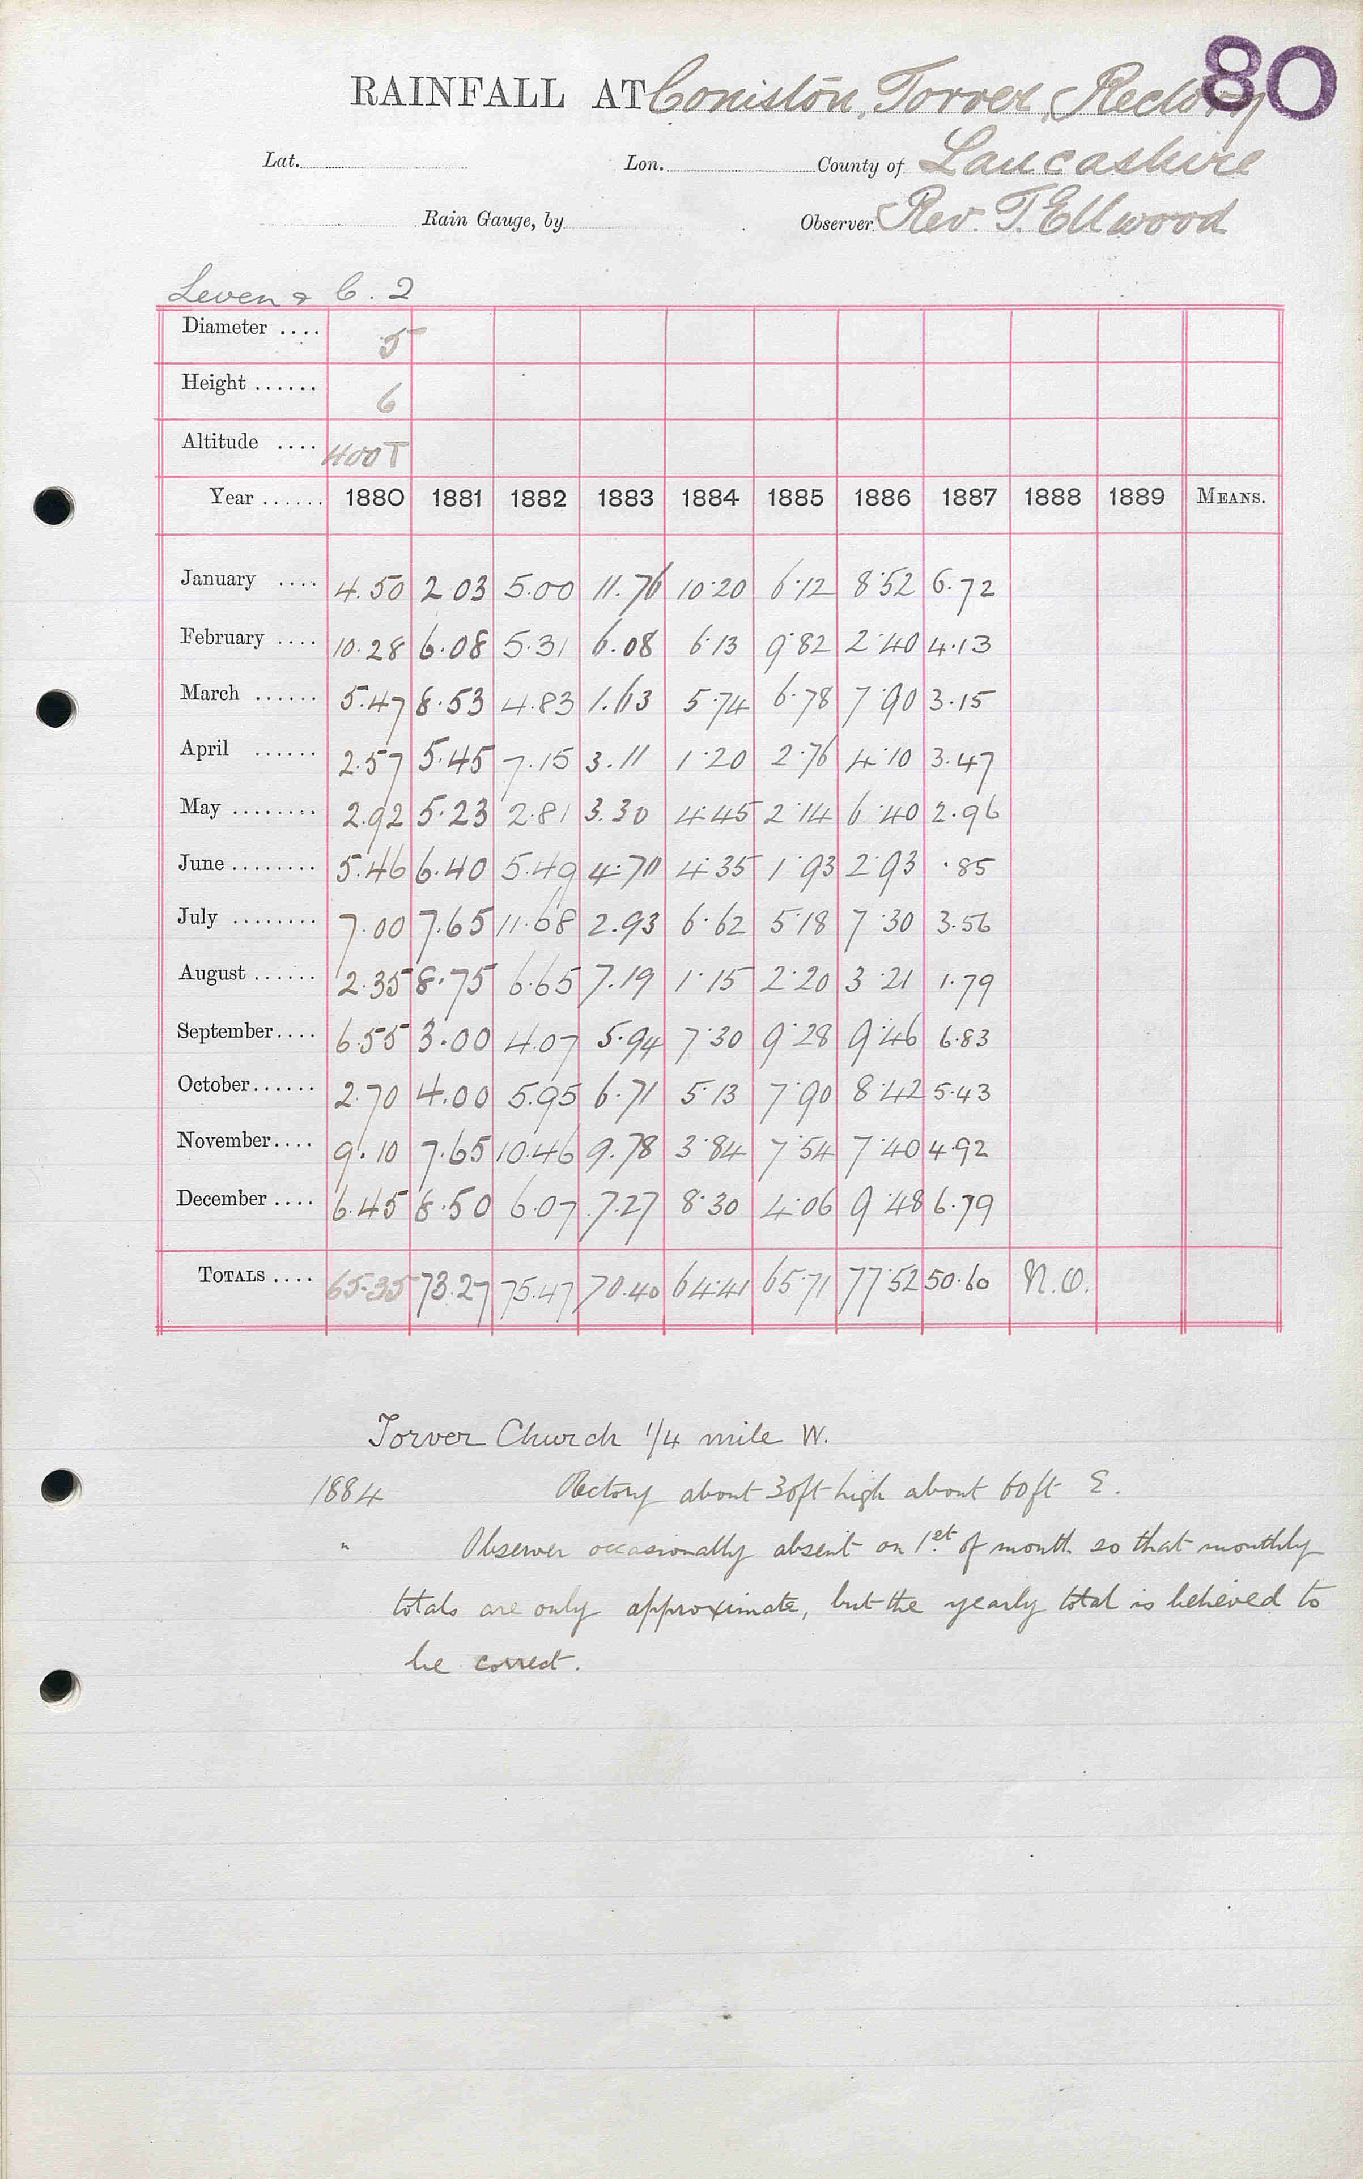 80
RAINFALL AT Coniston, Torver, Rectory
Lat. Lon. County of Lancashire
Rain Gauge, by Observer Rev. T. Ellwood
Leven & C. 2
Diameter .... 5
Height ...... 6
Altitude .... 400T
Year ...... 1880 1881 1882 1883 1884 1885 1886 1887 1888 1889 MEANS.
January .... 4.50 2 03 5.00 11.76 10.20 6.12 8.52 6.72
February .... 10.28 6.08 5.31 6.08 6.13 9.82 2.40 4.13
March ...... 5.47 8.53 4.83 1.63 5.74 6.78 7.90 3.15
April ...... 2.57 5.45 7.15 3.11 1.20 2.76 4.10 3.47
May ........ 2.92 5.23 2.81 3.30 4.45 2.14 6.40 2.96
June ........ 5.46 6.40 5.49 4.70 4.35 1.93 2.93 .85
July ........ 7.00 7.65 11.68 2.93 6.62 5.18 7.30 3.56
August ...... 2.35 8.75 6.65 7.19 1.15 2.20 3.21 1.79
September .... 6.55 3.00 4.07 5.94 7.30 9.28 9.46 6.83
October ...... 2.70 4.00 5.95 6.71 5.13 7.90 8.42 5.43
November .... 9.10 7.65 10.46 9.78 3.84 7.54 7.40 4.92
December .... 6.45 8.50 6.07 7.27 8.30 4.06 9.48 6.79
TOTALS .... 65.35 73.27 75.47 70.40 64.41 65.71 77.52 50.60 N.O.
Torver Church 1/4 mile W.
1884 Rectory about 30ft high about 60ft E.
" Observer occasionally absent on 1st of month so that monthly
totals are only approximate, but the yearly total is believed to
be correct.